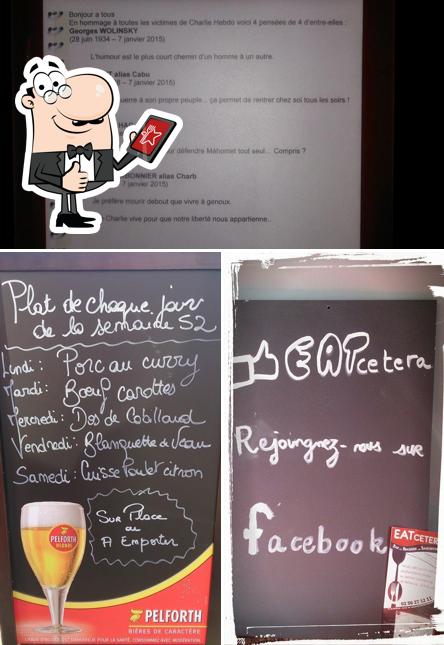 Bonjour a tous
En hommage à toutes les victimes de Charlie Hebdo voici 4 pensées de 4 d'entre-elles :
Georges WOLINSKY
(28 juin 1934 – 7 janvier 2015)
L'humour est le plus court chemin d'un homme à un autre.
alias Cabu
– 7 janvier 2015)
à son propre peuple... ça permet de rentrer chez soi tous les soirs !
défendre Mahomet tout seul... Compris ?
BONNIER alias Charb
7 janvier 2015)
préfère mourir debout que vivre à genoux.
Charlie vive pour que notre liberté nous appartienne..
Plat de chaque jour
de la semaine 52
Lundi : Porc au curry
Mardi : Bœuf carottes
Mercredi : Dos de Cabillaud
Vendredi : Blanquette de Veau
Samedi : Cuisse Poulet citron
Sur Place
ou
A Emporter
PELFORTH
BLONDE
PELFORTH
BIÈRES DE CARACTÈRE
L'ABUS D'ALCOOL EST DANGEREUX POUR LA SANTÉ. CONSOMMEZ AVEC MODÉRATION.
EATcetera
Rejoingnez-nous sur
facebook
EATCETER